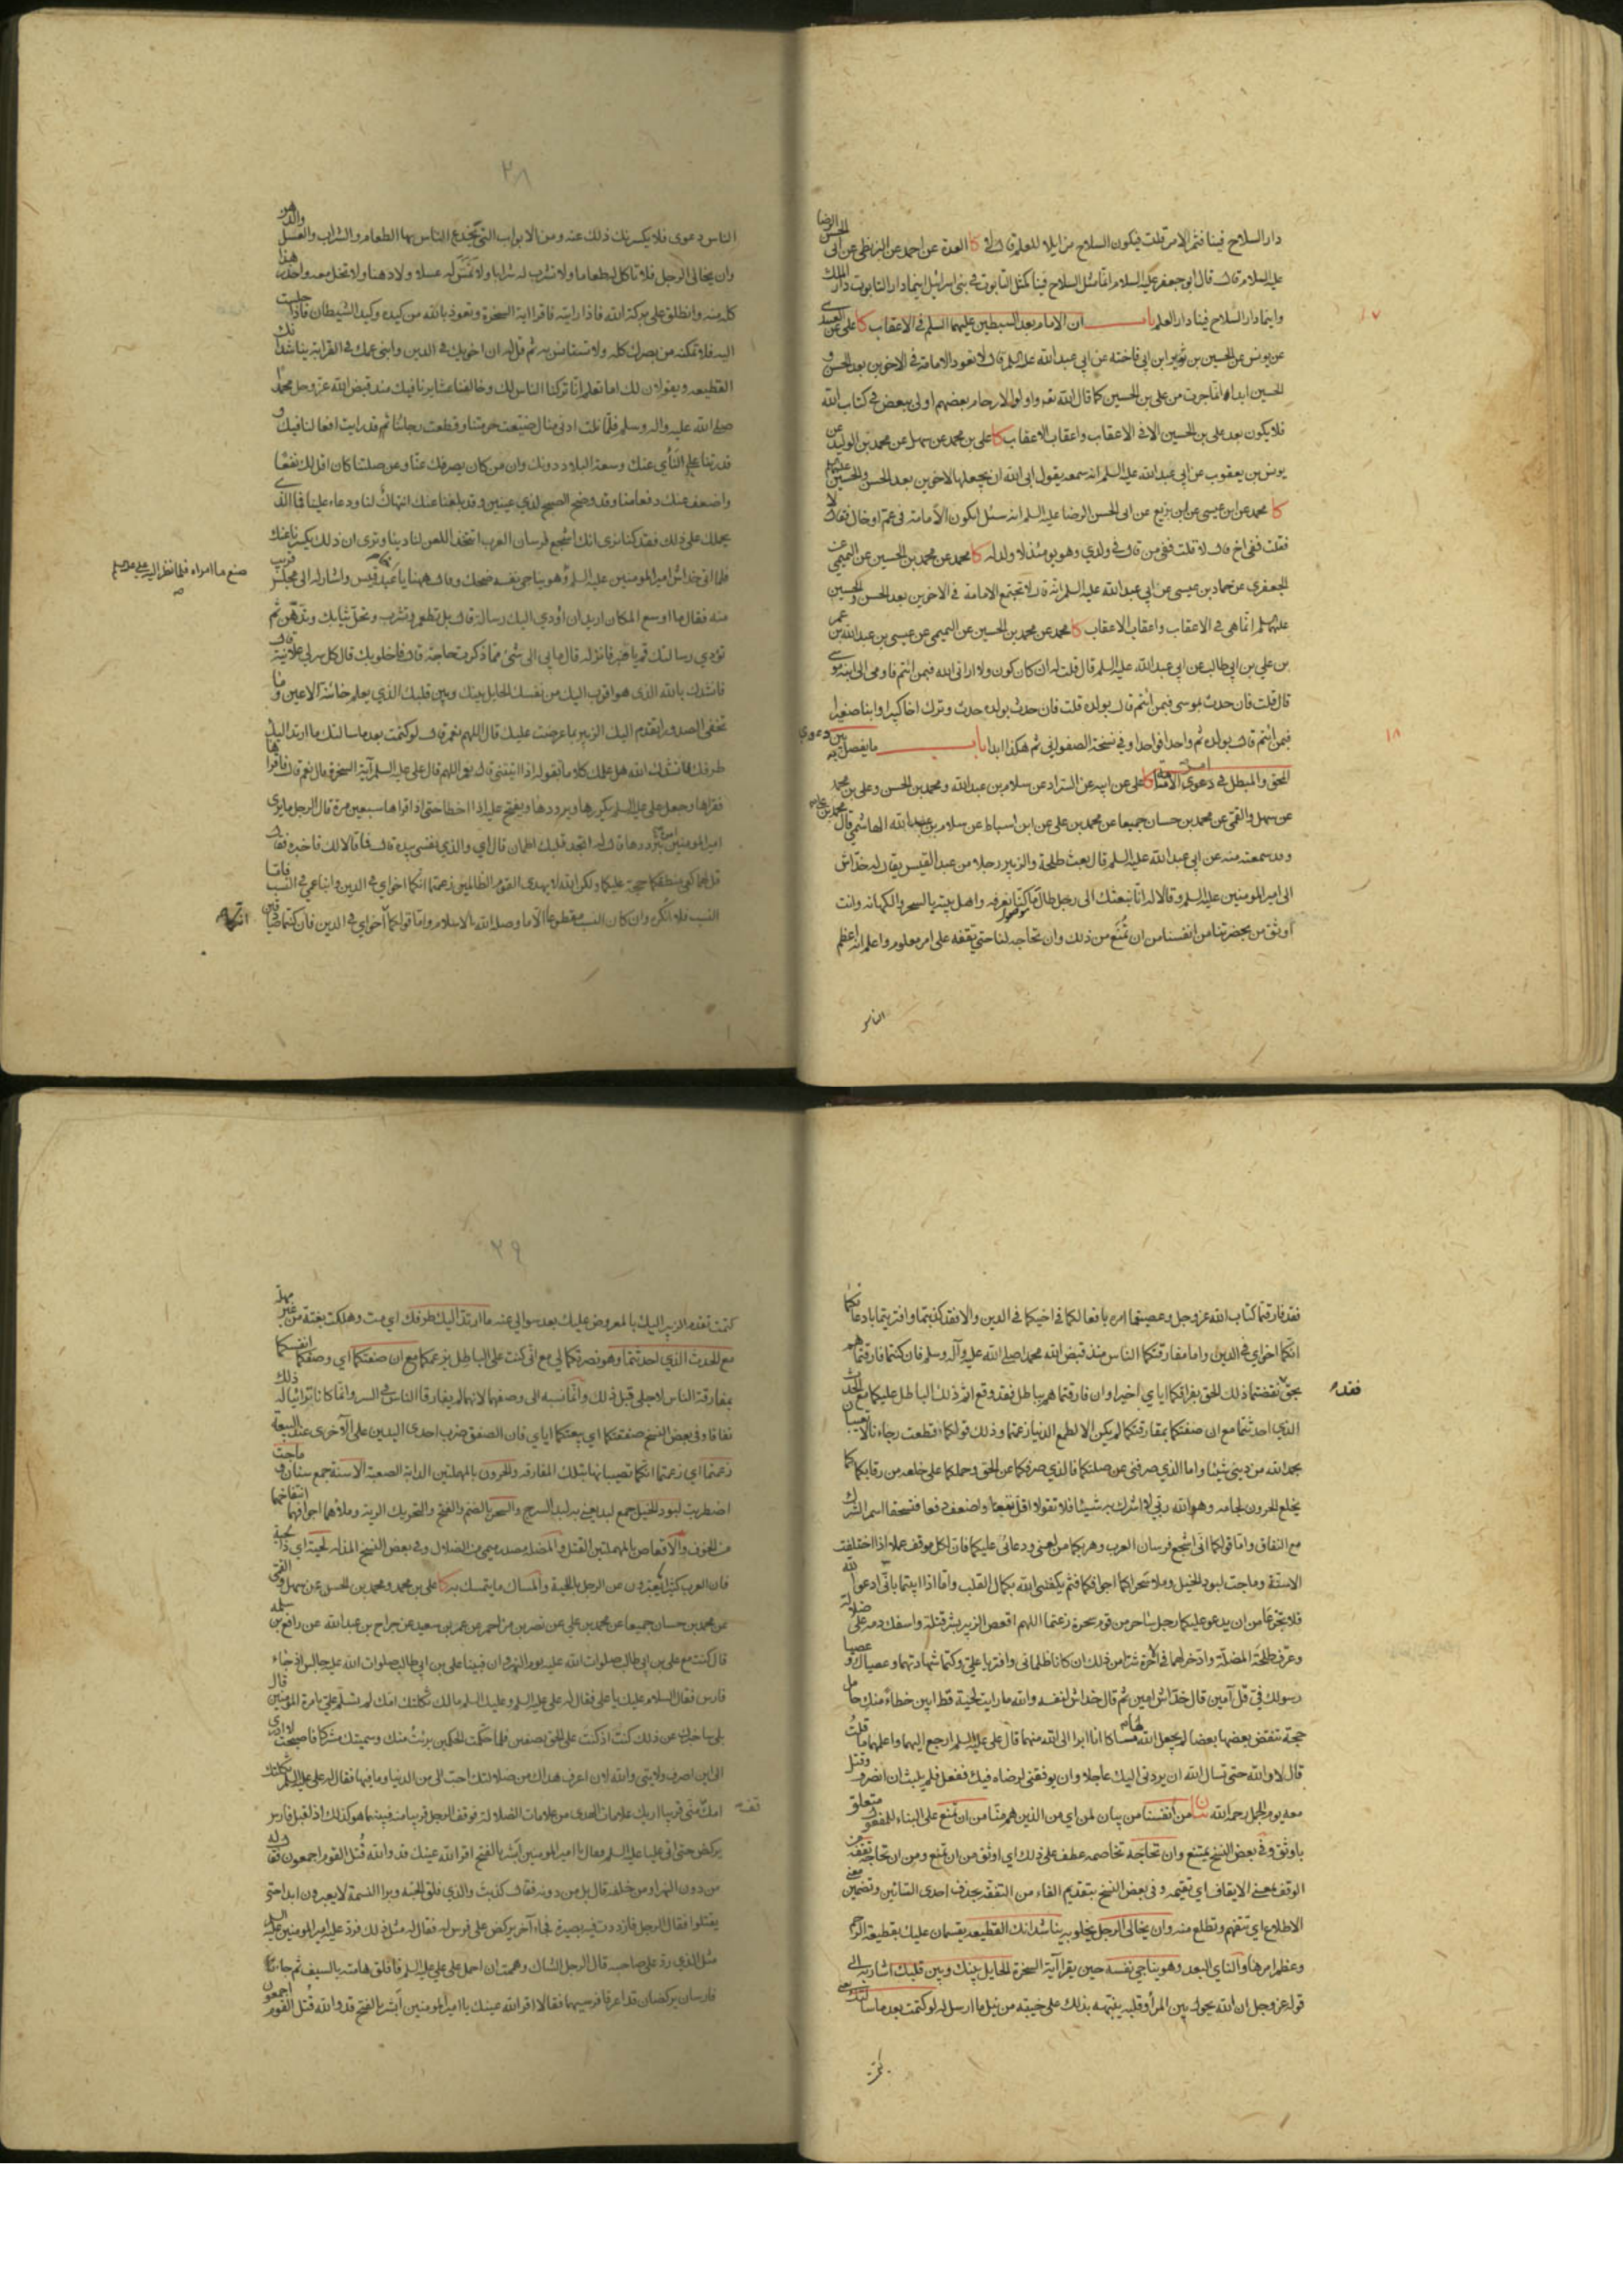 دار السلاح فينا فثم الامر قلت فيكون السلاح مزايلا للعلم قال لا كا العدة عن احمد عن البزنطي عن ابي الحسن الرضا
عليه السلام قال قال ابو جعفر عليه السلام انما مثل السلاح فينا كمثل التابوت في بني اسرائيل اينما دار التابوت دار الملك
واينما دار السلاح فينا دار العلم باب ان الامام بعد السبطين عليهما السلم في الاعقاب كا علي عن العبيدي
١٧
عن يونس عن الحسين بن ثوير ابن ابي فاخته عن ابي عبد الله عليه السلم قال لا تعود الامامة في الاخوين بعد الحسن و
الحسين ابدا انما جرت من علي بن الحسين كما قال الله تعم واولوا الارحام بعضهم اولى ببعض في كتاب الله
فلا يكون بعد علي بن الحسين الا في الاعقاب واعقاب الاعقاب كا علي بن محمد عن سهل عن محمد بن الوليد عن
يونس بن يعقوب عن ابي عبد الله عليه السلم انه سمعه يقول ابى الله ان يجعلها لاخوين بعد الحسن والحسين عليهما
كا محمد عن ابن عيسى عن ابن بزيع عن ابي الحسن الرضا عليه السلم انه سئل ايكون الامامة في عم او خال فقال لا
فقلت ففي اخ قال لا قلت ففي من قال في ولدي وهو يومئذ لا ولد له كا محمد عن محمد بن الحسين عن التميمي عن
الجعفري عن حماد بن عيسى عن ابي عبد الله عليه السلم انه قال لا تجتمع الامامة في الاخوين بعد الحسن والحسين
عليهما السلم انما هي في الاعقاب واعقاب الاعقاب كا محمد عن محمد بن الحسين عن التميمي عن عيسى بن عبد الله بن عمر
بن علي بن ابي طالب عن ابي عبد الله عليه السلم قال قلت له ان كان كون ولا اراني الله فبمن ائتم فاومى الى ابنه موسى
قال قلت فان حدث بموسى فبمن ائتم قال بولده قلت فان حدث بولده حدث وترك اخا كبيرا وابنا صغيرا
فبمن ائتم قال بولده ثم واحدا فواحدا وفي نسخة الصفواني ثم هكذا ابدا باب ما يفصل به بين دعوى
١٨
المحق والمبطل في دعوى الامامة كا علي عن ابيه عن السراد عن سلام بن عبد الله ومحمد بن الحسن وعلي بن محمد
عن سهل والقمي عن محمد بن حسان جميعا عن محمد بن علي عن ابن اسباط عن سلام بن عبد الله الهاشمي قال محمد بن علي
وقد سمعته منه عن ابي عبد الله عليه السلم قال بعث طلحة والزبير رجلا من عبد القيس يقال له خداش
الى امير المومنين عليه السلم وقالا له انا نبعثك الى رجل طال ما كنا نعرفه واهل بيته بالسحر والكهانة وانت
اوثق من بحضرتنا من انفسنا من ان تمنع من ذلك وان تحاجه لنا حتى تقفه على امر معلوم واعلم انه اعظم
الناس
٢٨
الناس دعوى فلا يكسرنك ذلك عنه ومن الابواب التي يخدع الناس بها الطعام والشراب والعسل والدهن
وان يخالي الرجل فلا تاكل له طعاما ولا تشرب له شرابا ولا تمس له عسلا ولا دهنا ولا تخل معه واحذر هذا
كله منه وانطلق على بركة الله فاذا رايته فاقرا اية السخرة وتعوذ بالله من كيده وكيد الشيطان فاذا جلست
اليه فلا تمكنه من بصرك كله ولا تستانس به ثم قل له ان اخويك في الدين وابني عمك في القرابة يناشدانك
القطيعه ويقولان لك اما تعلم انا تركنا الناس لك وخالفنا عشايرنا فيك منذ قبض الله عز وجل محمدا
صلى الله عليه واله وسلم فلما نلت ادنى منال ضيعت حرمتنا وقطعت رجائنا ثم قد رايت افعالنا فيك و
قدرتنا على النأي عنك وسعة البلاد دونك وان من كان يصرفك عنا وعن صلتنا كان اقل لك نفعا
واضعف عنك دفعا منا وقد وضح الصبح لذي عينين وقد بلغنا عنك انتهاك لنا ودعاء علينا فما الذي
يحملك على ذلك فقد كنا نرى انك اشجع فرسان العرب اتتخذ اللعن لنا دينا وترى ان ذلك يكسرنا عنك
فلما اتى خداش امير المومنين عليه السلم وهو يناجي نفسه ضحك وقال ههنا يا عبد قيس واشار له الى مجلس قريب
صنع ما امراه فلما نظر اليه علي عليه السلم
منه فقال ما اوسع المكان اريد ان اؤدي اليك رسالة قال بل تطعم وتشرب وتحل ثيابك وتدهن ثم
تؤدي رسالتك قم يا قنبر فانزله قال ما بي الى شئ مما ذكرت حاجة قال فاخلو بك قال كل سر لي علانية قال
فانشدك بالله الذي هو اقرب اليك من نفسك الحايل بينك وبين قلبك الذي يعلم خائنة الاعين وما
تخفي الصدور اتقدم اليك الزبير بما عرضت عليك قال اللهم نعم قال لو كتمت بعد ما سالتك ما ارتد اليك
طرفك فانشدك الله هل علمك كلاما تقوله اذا اتيتني قال اللهم نعم قال علي عليه السلم آية السخرة قال نعم قال فاقراها
فقراها وجعل علي عليه السلم يكررها ويرددها ويفتح عليه اذا اخطا حتى اذا قراها سبعين مرة قال الرجل ما يرى
امير المومنين امره بترددها قال له اتجد قلبك اطمان قال اي والذي نفسي بيده قال فما قالا لك فاخبره فقال
قل لهما كفى بمنطقكما حجة عليكما ولكن الله لا يهدي القوم الظالمين زعمتما انكما اخواي في الدين وابنا عمي في النسب فاما
النسب فلا انكره وان كان النسب مقطوعا الا ما وصله الله بالاسلام واما قولكما اخواي في الدين فان كنتما صادقين
فقد فارقتما كتاب الله عز وجل وعصيتما امره بافعالكما في اخيكما في الدين والا فقد كذبتما وافتريتما بادعائكما
انكما اخواي في الدين واما مفارقتكما الناس منذ قبض الله محمدا صلى الله عليه وآله وسلم فان كنتما فارقتماهم
بحق نقضتما ذلك الحق بفراقكما اياي اخيرا وان فارقتماهم بباطل فقد وقع اثم ذلك الباطل عليكما مع الحدث
فقد
الذي احدثتما مع ان صفتكما بمفارقتكما لم يكن الا لطمع الدنيا زعمتما وذلك قولكما فقطعت رجاءنا لا تعيبان
بحمد الله من ديني شيئا واما الذي صرفني عن صلتكما فالذي صرفكما عن الحق وحملكما على خلعه من رقابكما كما
يخلع الحرون لجامه وهو الله ربي لا اشرك به شيئا فلا تقولا اقل نفعا واضعف دفعا فتستحقا اسم الشرك
مع النفاق واما قولكما اني اشجع فرسان العرب وهربكما من لعني ودعائي عليكما فان لكل موقف عملا اذا اختلفت
الاسنة وماجت لبود الخيل وملا سحراكما اجوافكما فثم يكفيني الله بكمال القلب واما اذا ابيتما باني ادعو الله
فلا تجزعا من ان يدعو عليكما رجل ساحر من قوم سحرة زعمتما اللهم اقعص الزبير بشر قتلة واسفك دمه على ضلالة
وعرف طلحة المضلة وادخر لهما في الاخرة شرا من ذلك ان كانا ظلماني وافتريا علي وكتما شهادتهما وعصياك وعصيا
رسولك في قل آمين قال خداش امين ثم قال خداش لنفسه والله ما رايت لحية قط ابين خطاء منك حامل
حجة تنقض بعضها بعضا لم يجعل الله لها مساكا انا ابرا الى الله منهما قال علي عليه السلم ارجع اليهما واعلمهما ما قلت
قال لا والله حتى تسال الله ان يردني اليك عاجلا وان يوفقني لرضاه فيك ففعل فلم يلبث ان انصرف وقتل
معه يوم الجمل رحمه الله بيان من انفسنا من بيان لمن اي من الذين هم منا من ان تمنع على البناء للمفعول متعلق
باوثق وفي بعض النسخ تمتنع وان تحاجه تخاصمه عطف على ذلك اي اوثق من ان تمنع ومن ان تحاجه تقفه من
الوقف بمعنى الايقاف اي تقيمه وفي بعض النسخ بتقديم الفاء من التفقه بحذف احدى التائين وتضمين معنى
الاطلاع اي تتفهم وتطلع منه وان يخالي الرجل يخلو به يناشدانك القطيعه يقسمان عليك بقطيعة الرحم
وعظم امرها والناي البعد وهو يناجي نفسه حين يقرا آية السخرة الحايل بينك وبين قلبك اشار به الى
قوله عز وجل ان الله يحول بين المرأ وقلبه ينبهه بذلك على خيبته من نيل ما ارسل له لو كتمت بعد ما سالتك يعني
٢٩
كتمت تقدم الزبير اليك بالمعروض عليك بعد سوالي عنه ما ارتد اليك طرفك اي مت وهلكت بغتة من غير مهلة
مع الحدث الذي احدثتما وهو نصرتكما لي مع اني كنت على الباطل بزعمكما مع ان صفتكما اي وصفكما انفسكما
بمفارقة الناس لاجلي قبل ذلك وانما نسبه الى وصفهما لانهما لم يفارقا الناس في السر وانما كانا يرائيان له ذلك
نفاقا وفي بعض النسخ صفقتكما اي بيعتكما اياي فان الصفق ضرب احدى اليدين على الآخرى عند البيعة
زعمتما اي زعمتما انكما تصيبانها بتلك المفارقة والحرون بالمهملتين الدابة الصعبة الاسنة جمع سنان و ماجت
اضطربت لبود الخيل جمع لبد يعني به لبد السرج والسحر بالضم والفتح والتحريك الرية وملاهما اجوافهما انتفاخهما
من الخوف والاقعاص بالمهملتين القتل والمضلة مصدر ميمي من الضلال وفي بعض النسخ المذلة لحية اي ذا لحية
فان العرب كثيرا يعبرون عن الرجل باللحية والمساك ما يتمسك به كا علي بن محمد ومحمد بن الحسن عن سهل و القمي
عن محمد بن حسان جميعا عن محمد بن علي عن نصر بن مزاحم عن عمر بن سعيد عن جراح بن عبد الله عن رافع بن سلمة
قال كنت مع علي بن ابي طالب صلوات الله عليه يوم النهروان فبينا علي بن ابي طالب صلوات الله عليه جالس اذ جاء
فارس فقال السلام عليك يا علي فقال له علي عليه السلم وعليك السلم مالك ثكلتك امك لم تسلم علي بامرة المومنين قال
بلى ساخبرك عن ذلك كنت اذ كنت على الحق بصفين فلما حكمت الحكمين برئت منك وسميتك مشركا فاصبحت لا ادري
الى اين اصرف ولايتي والله لان اعرف هداك من ضلالتك احب الي من الدنيا وما فيها فقال له علي عليه السلم ثكلتك
امك قف مني قريبا اريك علامات الهدى من علامات الضلالة فوقف الرجل قريبا منه فبينما هو كذلك اذ اقبل فارس
يركض حتى اتى عليا عليه السلم فقال يا امير المومنين ابشر بالفتح اقر الله عينك قد والله قتل القوم اجمعون فقال له
من دون النهر او من خلفه قال بل من دونه فقال كذبت والذي فلق الحبة وبرا النسمة لا يعبرون ابدا حتى
يقتلوا فقال الرجل فازددت فيه بصيرة فجاء آخر يركض على فرس له فقال له مثل ذلك فرد عليه امير المومنين عليه السلم
مثل الذي رد على صاحبه قال الرجل الشاك وهممت ان احمل على علي عليه السلم فافلق هامته بالسيف ثم جاءنا
فارسان يركضان قد اعرقا فرسيهما فقالا اقر الله عينك يا امير المومنين ابشر بالفتح قد والله قتل القوم اجمعون